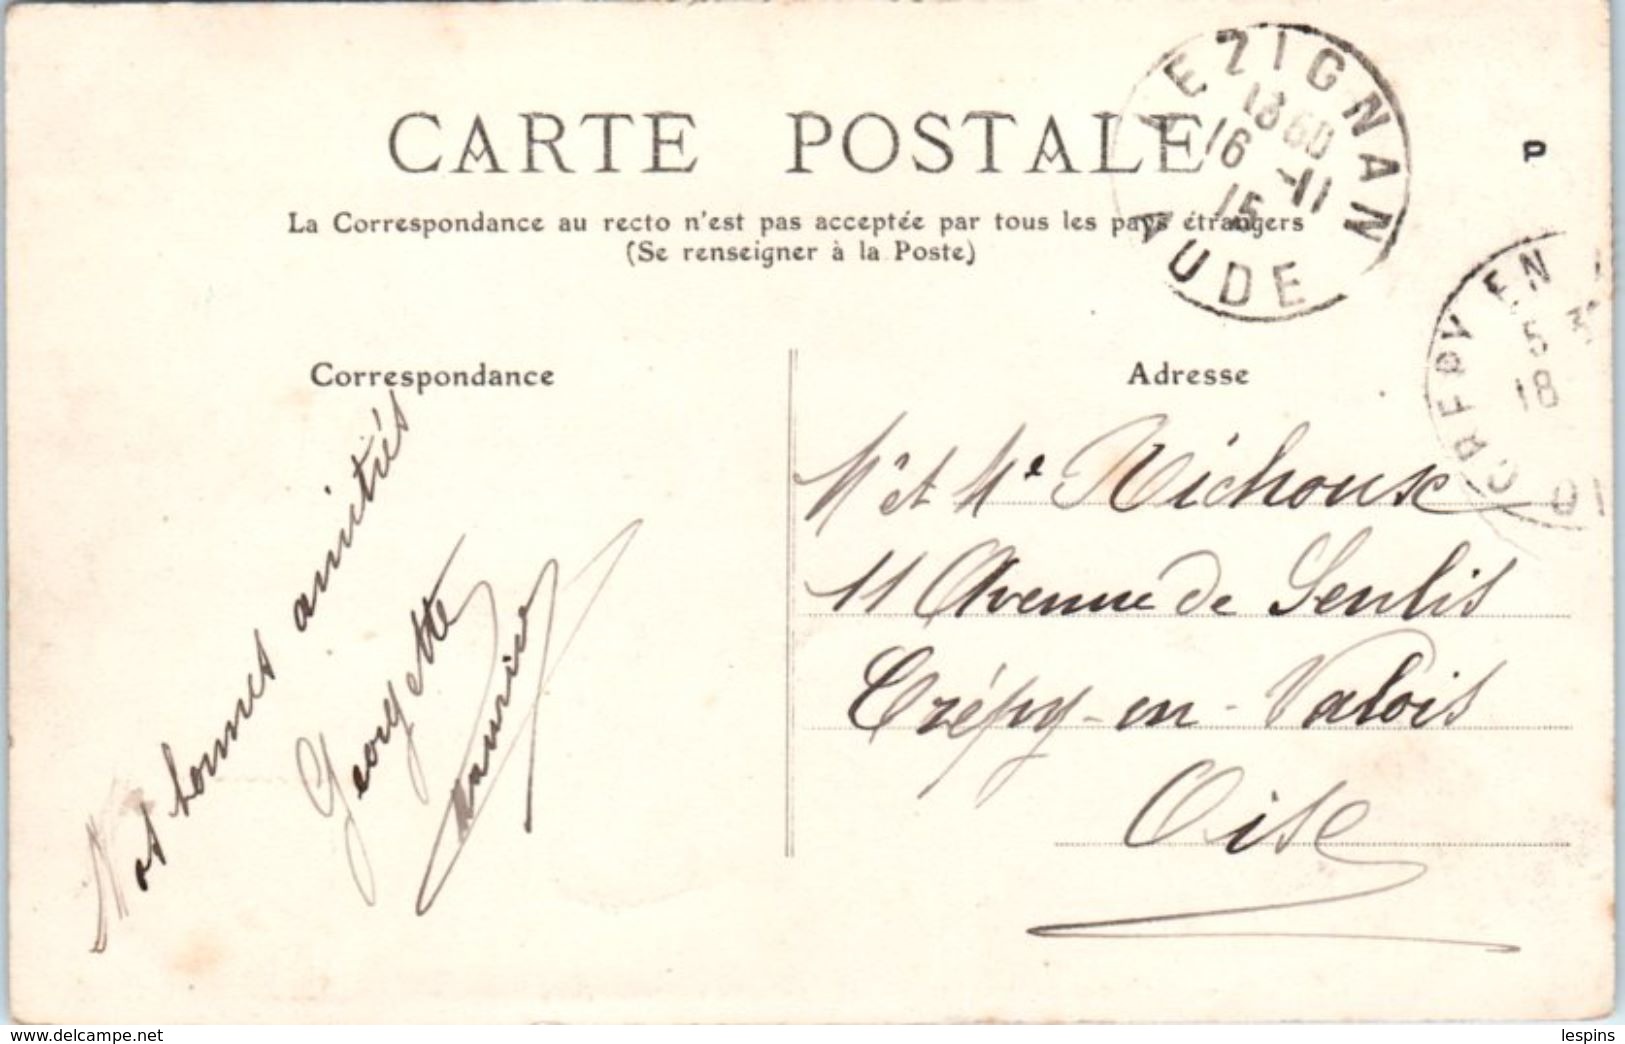 CARTE POSTALE
La Correspondance au recto n'est pas acceptée par tous les pays étrangers
(Se renseigner à la Poste)
LEZIGNAN
18 50
16 -11
15
AUDE
P
CREPY EN
5
18
OI
Correspondance
Nos bonnes amitiés
Georgette
Maurice
Adresse
Mr et Me Richoux
11 Avenue de Senlis
Crépy-en-Valois
Oise
www.delcampe.net
lespins